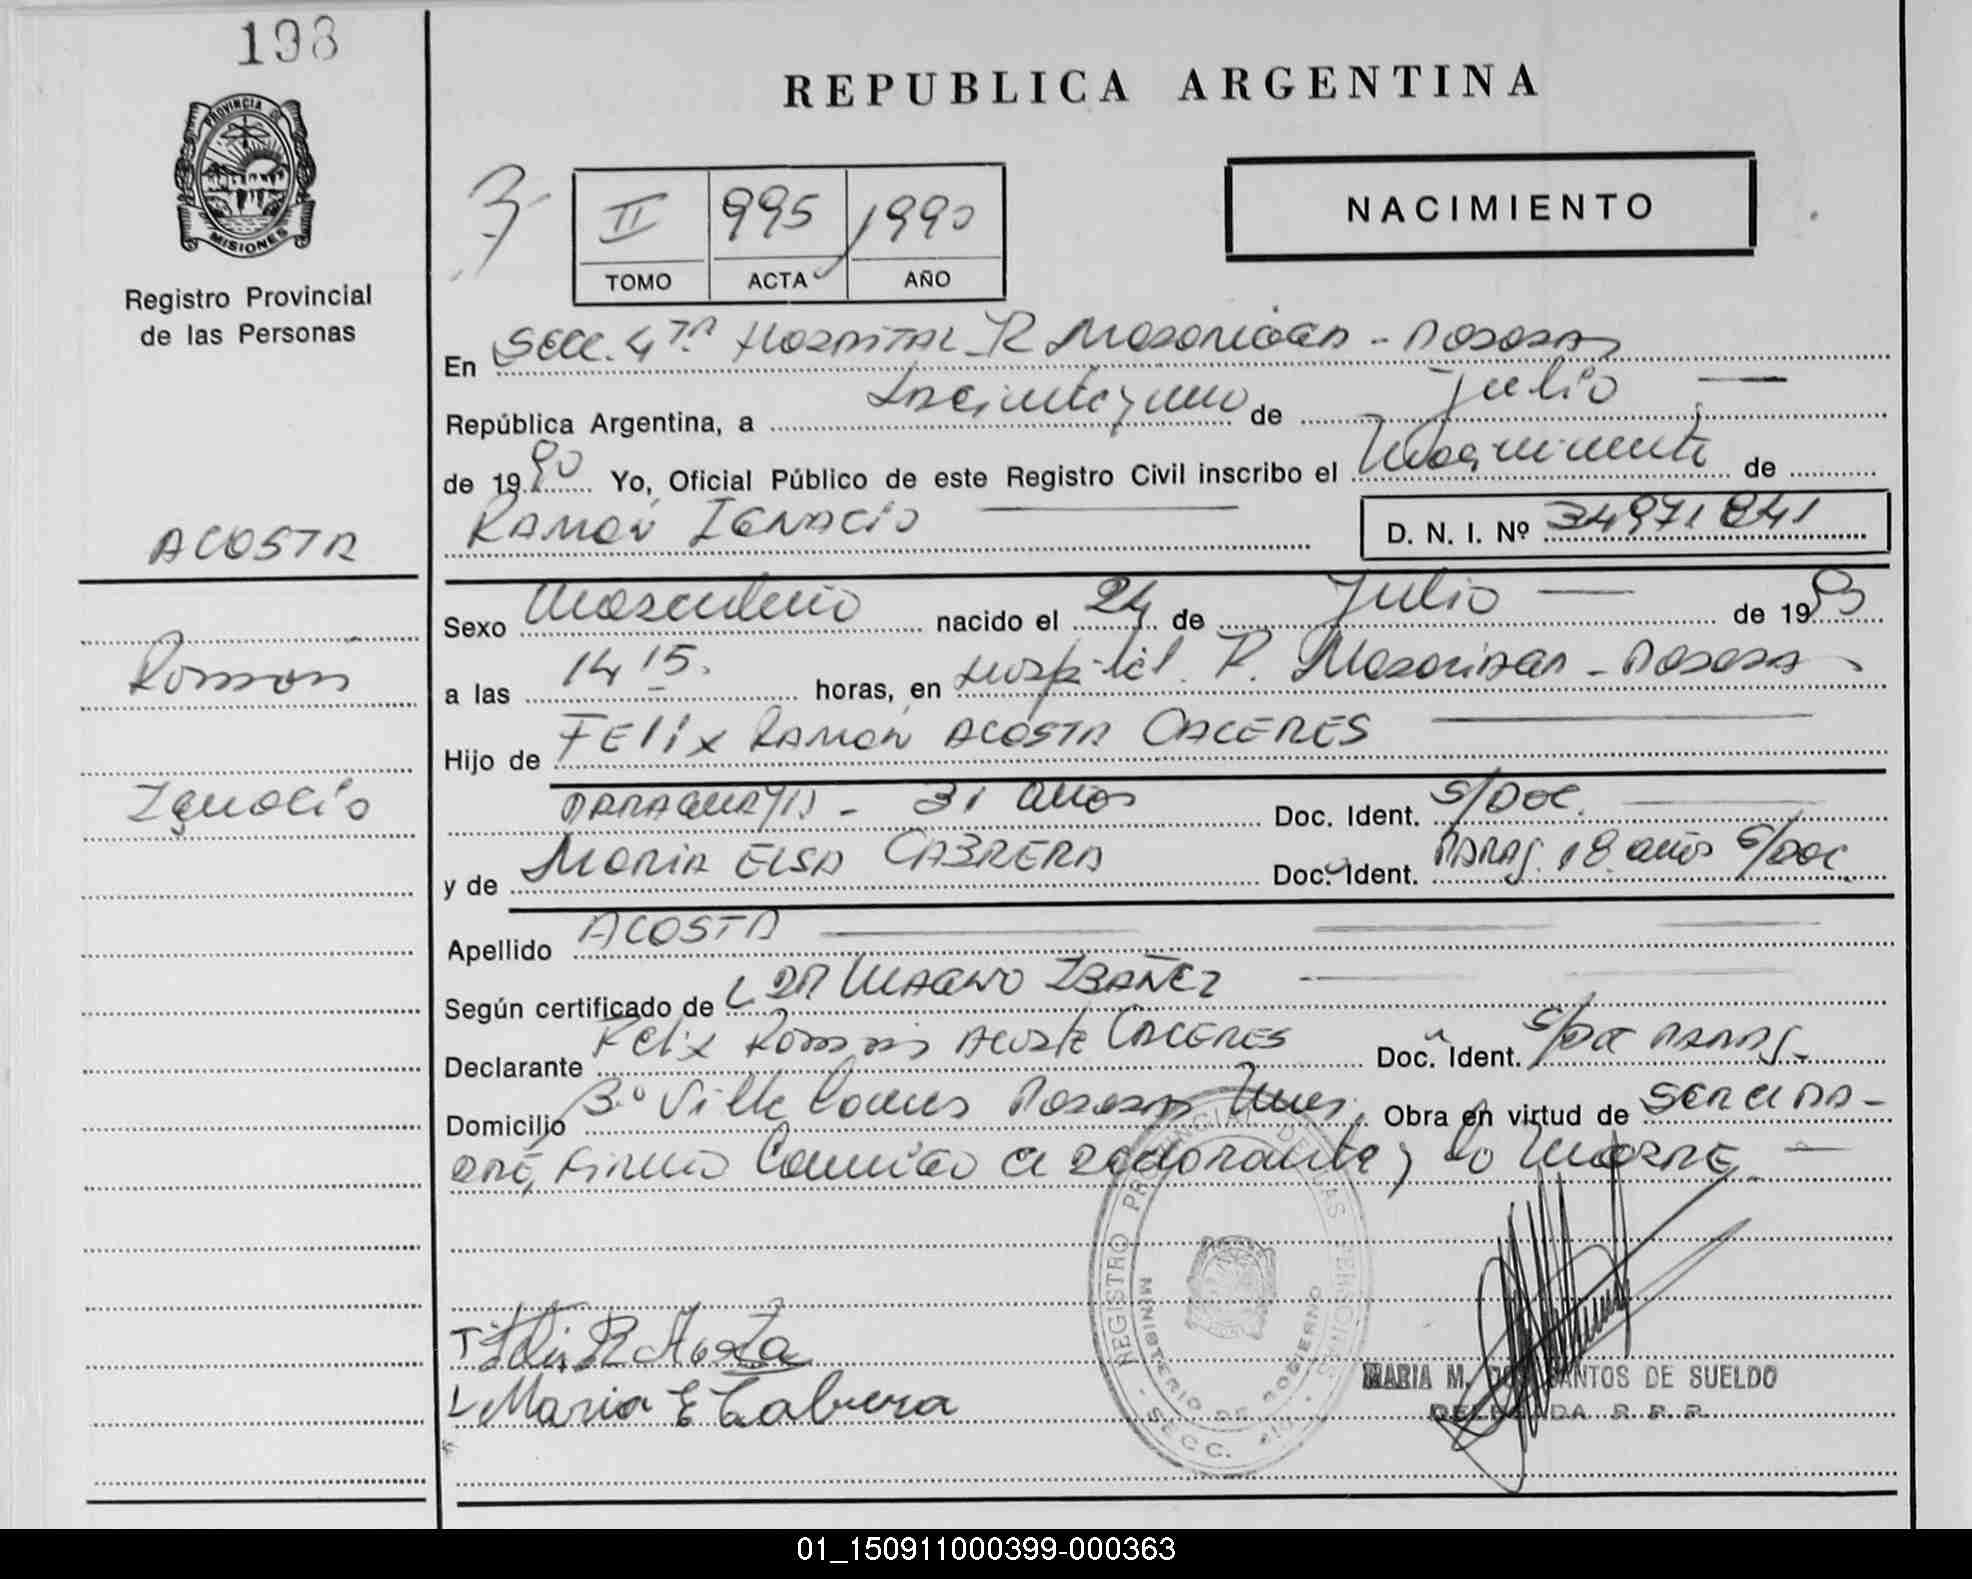 198
REPUBLICA ARGENTINA
PROVINCIA DE
MISIONES
Registro Provincial
de las Personas
II 995 1990
TOMO ACTA AÑO
NACIMIENTO
En Secc. 4ta Hospital R Madariaga - Posadas
República Argentina, a Treinta y uno de Julio
de 1990 Yo, Oficial Público de este Registro Civil inscribo el Nacimiento de
Ramón Ignacio
D. N. I. Nº 34971841
ACOSTA
Ramón
Ignacio
Sexo Masculino nacido el 24 de Julio de 19
a las 14 15. horas, en Hospital. R. Madariaga - Posadas
Hijo de Felix Ramón Acosta Caceres
Paraguaya - 31 años Doc. Ident. S/Doc.
y de Maria Elsa Cabrera Doc. Ident. Parag. 18 años S/Doc.
Apellido ACOSTA
Según certificado de Magno Ibañez
Declarante Felix Ramón Acosta Caceres Doc. Ident. S/Doc Parag.
Domicilio Bº Villa Posadas Mnes. Obra en virtud de ser el pa-
dre, firma el declarante y la Madre
REGISTRO PROVINCIAL DE LAS PERSONAS
MINISTERIO DE GOBIERNO
SECC. 4ta
T: Felix R Acosta
Maria E Cabrera
MARIA M. DOS SANTOS DE SUELDO
DELEGADA R. P. P.
01_150911000399-000363